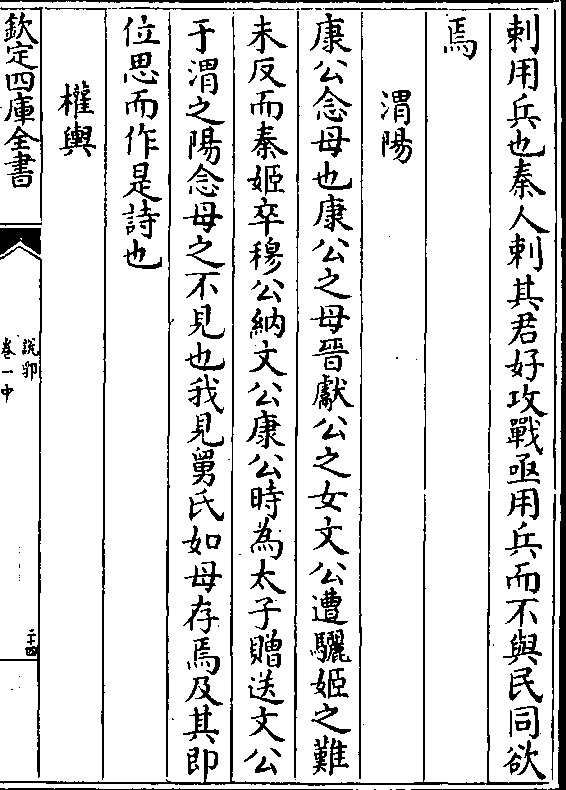 刺用兵也秦人刺其君好攻戰亟用兵而不與民同欲
焉
渭陽
康公念母也康公之母晉獻公之女文公遭驪姬之難
未反而秦姬卒穆公納文公康公時為太子贈送文公
于渭之陽念母之不見也我見舅氏如母存焉及其即
位思而作是詩也
權輿
欽定四庫全書
説郛
卷一中
二十四